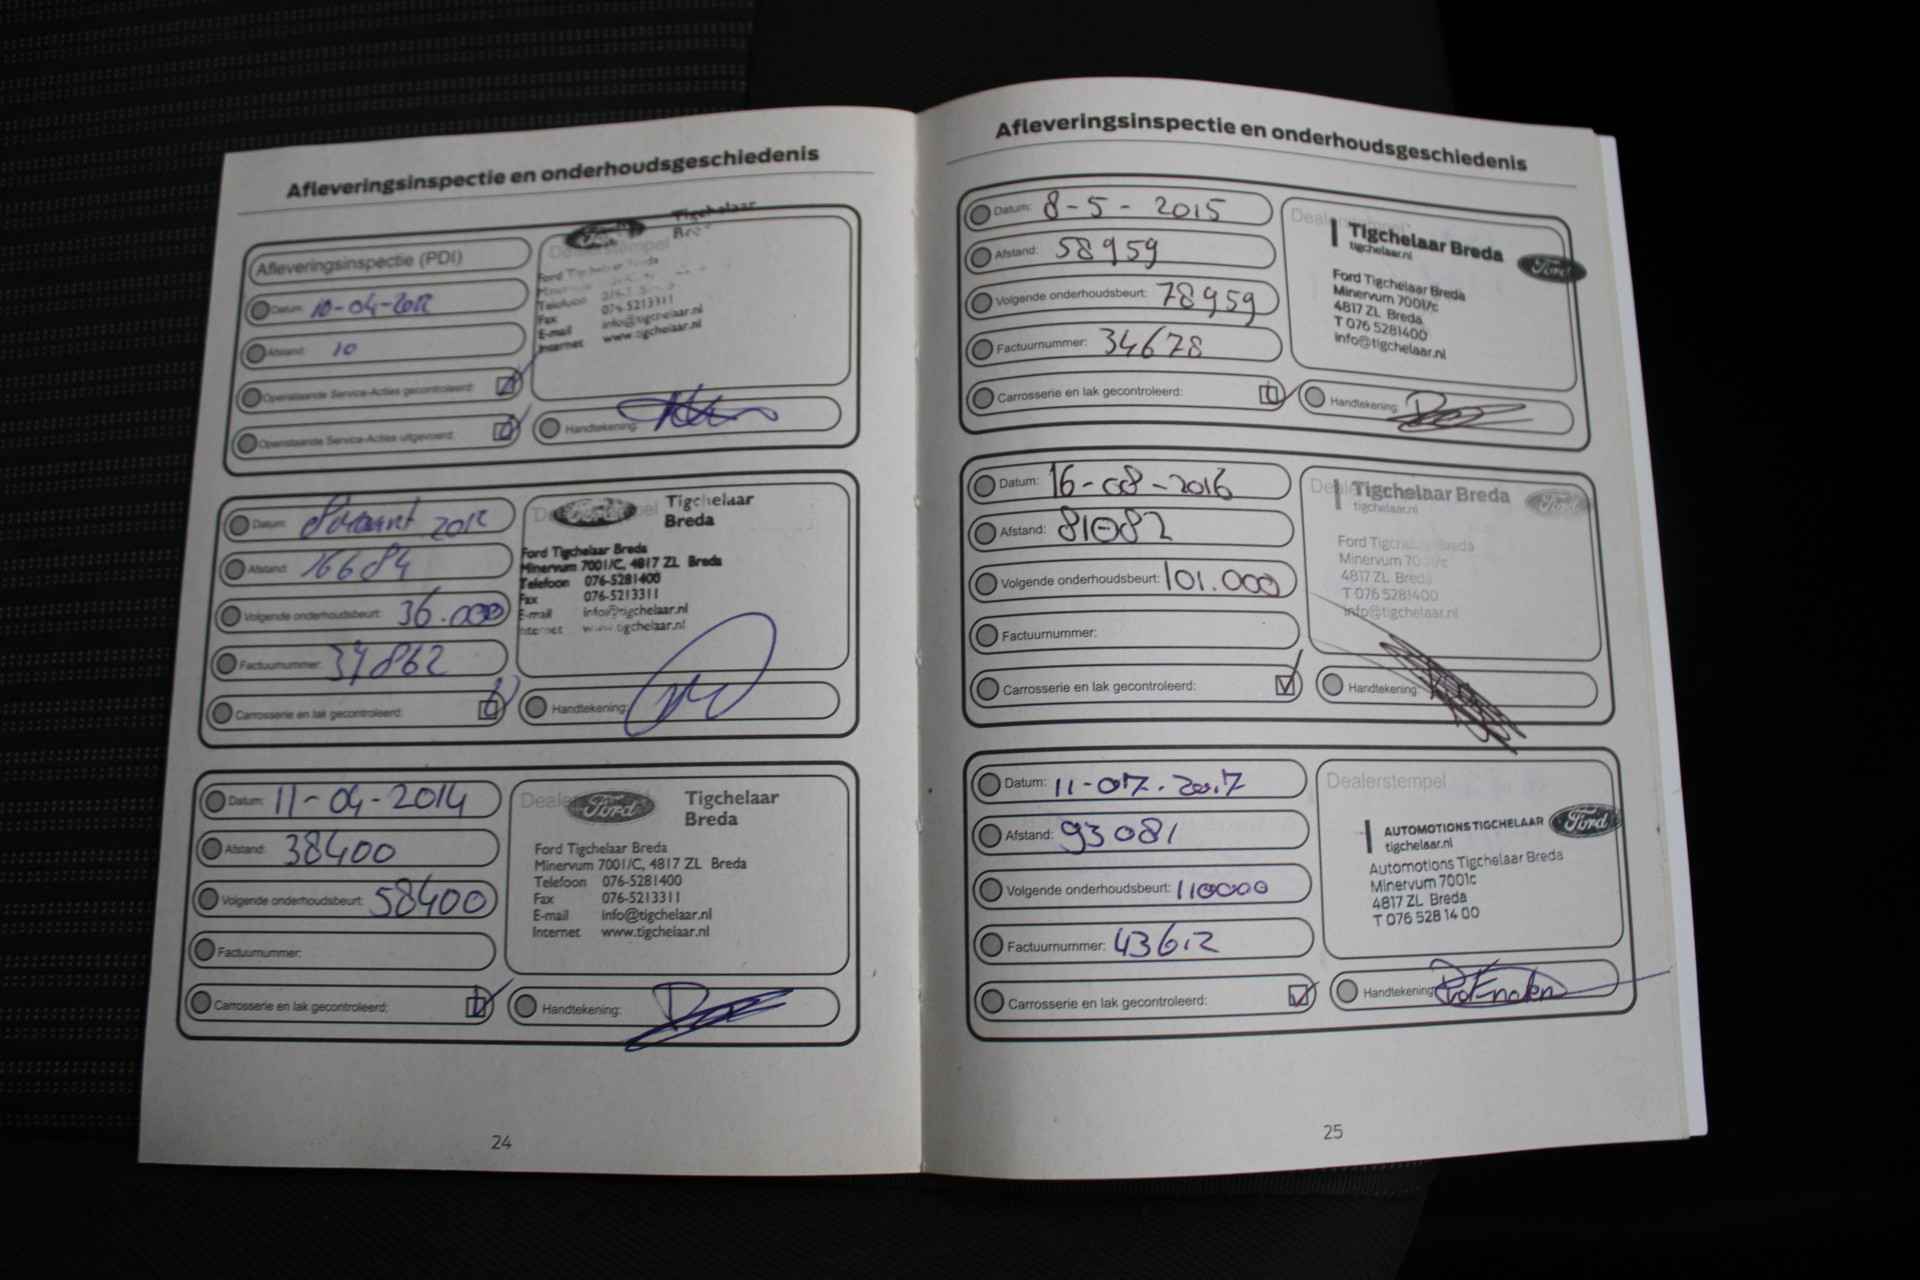 Afleveringsinspectie en onderhoudsgeschiedenis
Afleveringsinspectie (PDI)
Datum: 10-04-2012
Afstand: 10
Openstaande Service-Acties gecontroleerd:
Openstaande Service-Acties uitgevoerd:
Ford
Tigchelaar
Dealerstempel
Ford
Telefoon
Fax 076-5213311
E-mail info@tigchelaar.nl
Internet www.tigchelaar.nl
Handtekening:
Datum: 8 maart
Afstand: 16684
Volgende onderhoudsbeurt: 36.000
Factuurnummer: 37862
Carrosserie en lak gecontroleerd:
Tigchelaar
Breda
Ford Tigchelaar Breda
Minervum 7001/C, 4817 ZL Breda
Telefoon 076-5281400
Fax 076-5213311
E-mail info@tigchelaar.nl
Internet www.tigchelaar.nl
Handtekening:
Datum: 11-04-2014
Afstand: 38400
Volgende onderhoudsbeurt: 58400
Factuurnummer:
Carrosserie en lak gecontroleerd:
Ford
Tigchelaar
Breda
Ford Tigchelaar Breda
Minervum 7001/C, 4817 ZL Breda
Telefoon 076-5281400
Fax 076-5213311
E-mail info@tigchelaar.nl
Internet www.tigchelaar.nl
Handtekening:
24
Afleveringsinspectie en onderhoudsgeschiedenis
Datum: 8-5-2015
Afstand: 58959
Volgende onderhoudsbeurt: 78959
Factuurnummer: 34678
Carrosserie en lak gecontroleerd:
Tigchelaar Breda
tigchelaar.nl
Ford
Ford Tigchelaar Breda
Minervum 7001/c
4817 ZL Breda
T 076 5281400
info@tigchelaar.nl
Handtekening:
Datum: 16-08-2016
Afstand: 81082
Volgende onderhoudsbeurt: 101.000
Factuurnummer:
Carrosserie en lak gecontroleerd:
Tigchelaar Breda
tigchelaar.nl
Ford
Ford Tigchelaar Breda
Minervum 7001/c
4817 ZL Breda
T 076 5281400
info@tigchelaar.nl
Handtekening:
Datum: 11-07-2017
Afstand: 93081
Volgende onderhoudsbeurt: 110000
Factuurnummer: 43612
Carrosserie en lak gecontroleerd:
Dealerstempel
AUTOMOTIONS TIGCHELAAR
tigchelaar.nl
Ford
Automotions Tigchelaar Breda
Minervum 7001c
4817 ZL Breda
T 076 528 14 00
Handtekening:
25